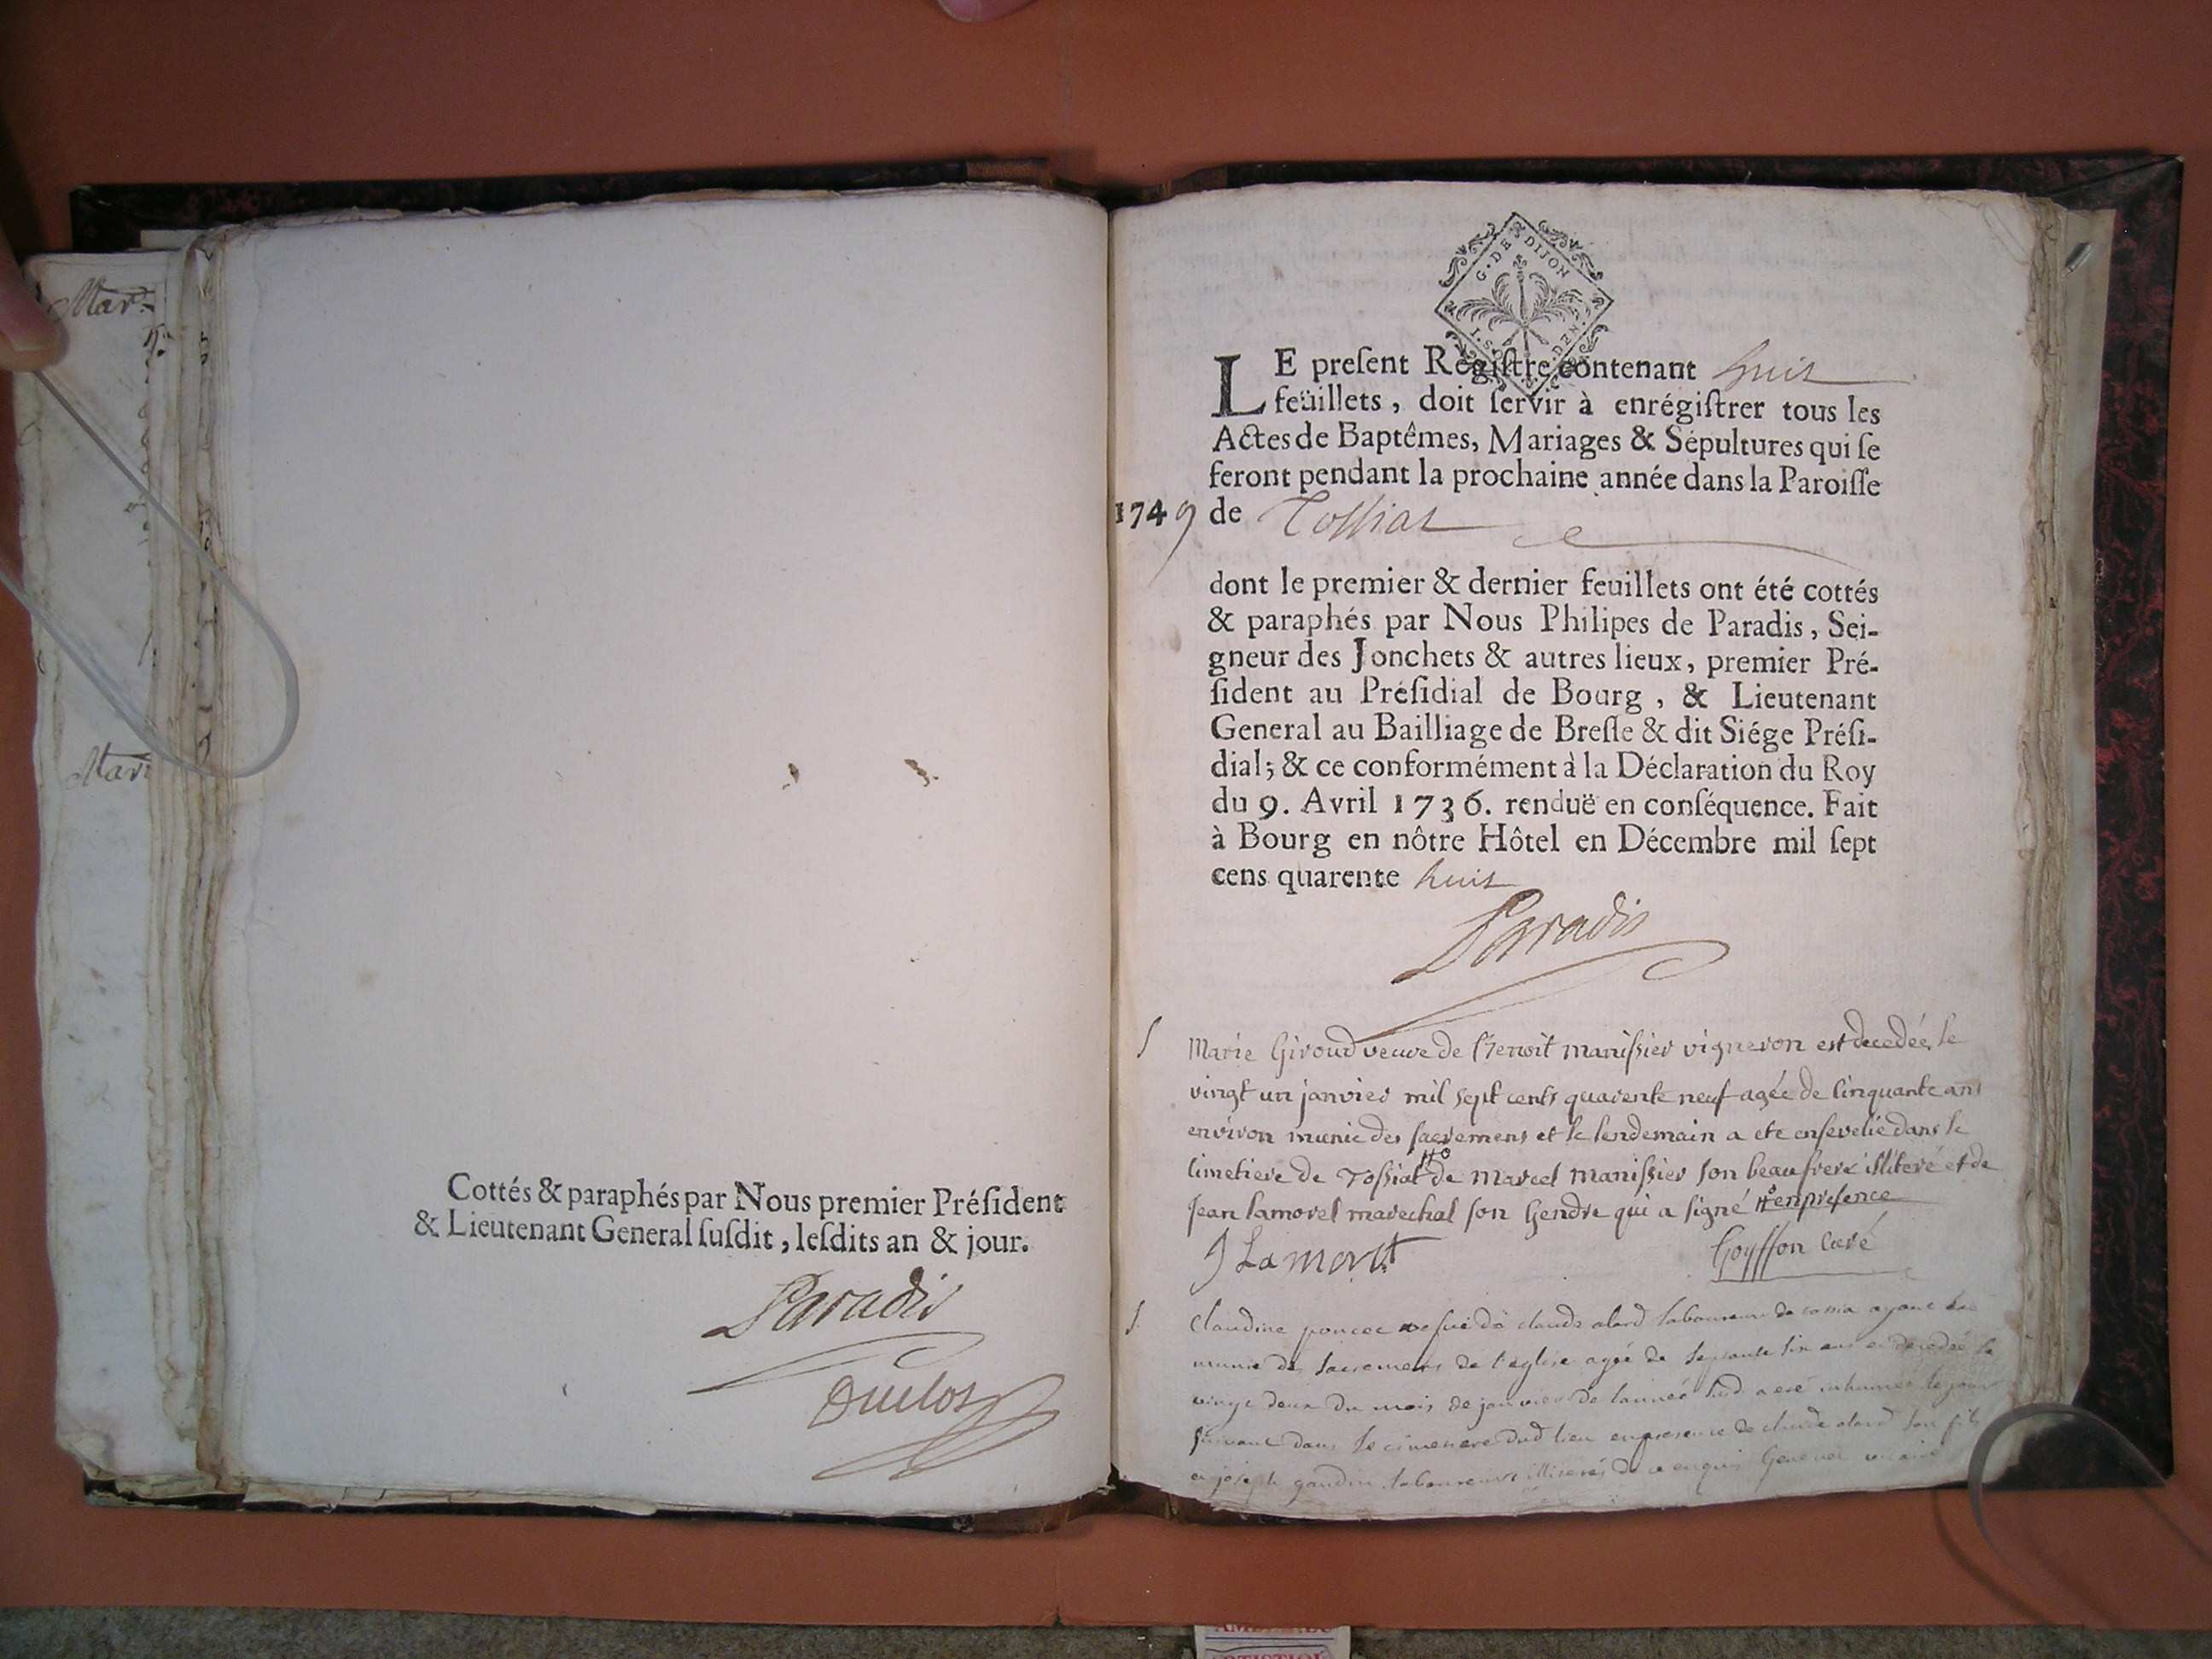 Mar.
Mar
Cottés & paraphés par Nous premier Préſident
& Lieutenant General ſuſdit, leſdits an & jour.
Paradis
Duclos
G. DE DIJON
LE preſent Regiſtre contenant huit
feüillets, doit ſervir à enrégiſtrer tous les
Actes de Baptêmes, Mariages & Sépultures qui ſe
feront pendant la prochaine année dans la Paroiſſe
1749 de Toſſiat
dont le premier & dernier feuillets ont été cottés
& paraphés par Nous Philipes de Paradis, Sei-
gneur des Jonchets & autres lieux, premier Pré-
ſident au Préſidial de Bourg, & Lieutenant
General au Bailliage de Breſſe & dit Siége Préſi-
dial; & ce conformément à la Déclaration du Roy
du 9. Avril 1736. renduë en conſéquence. Fait
à Bourg en nôtre Hôtel en Décembre mil ſept
cens quarente huit
Paradis
S Marie Giroud veuve de Benoit maniſsier vigneron est decedée le
vingt un janvier mil sept cents quarente neuf agée de Cinquante ans
environ munie des ſacremens et le lendemain a ete enſevelie dans le
Cimetiere de Toſsiat # de Marcel maniſsier ſon beaufrere illiteré et de
Jean Lamorel marechal ſon Gendre qui a ſigné # en preſence
J Lamorel Goyffon Curé
S. Claudine poncet vefue de claude alard laboureur de tossia ayant été
munie de sacremens de l'eglise agée de septante six ans est decedée le
vingt deux du mois de janvier de l'année susd a eté inhumée le jour
suivant dans le cimetiere dud lieu en presence de claude alard son fils
et joseph gaudin laboureurs illiterés de ce enquis